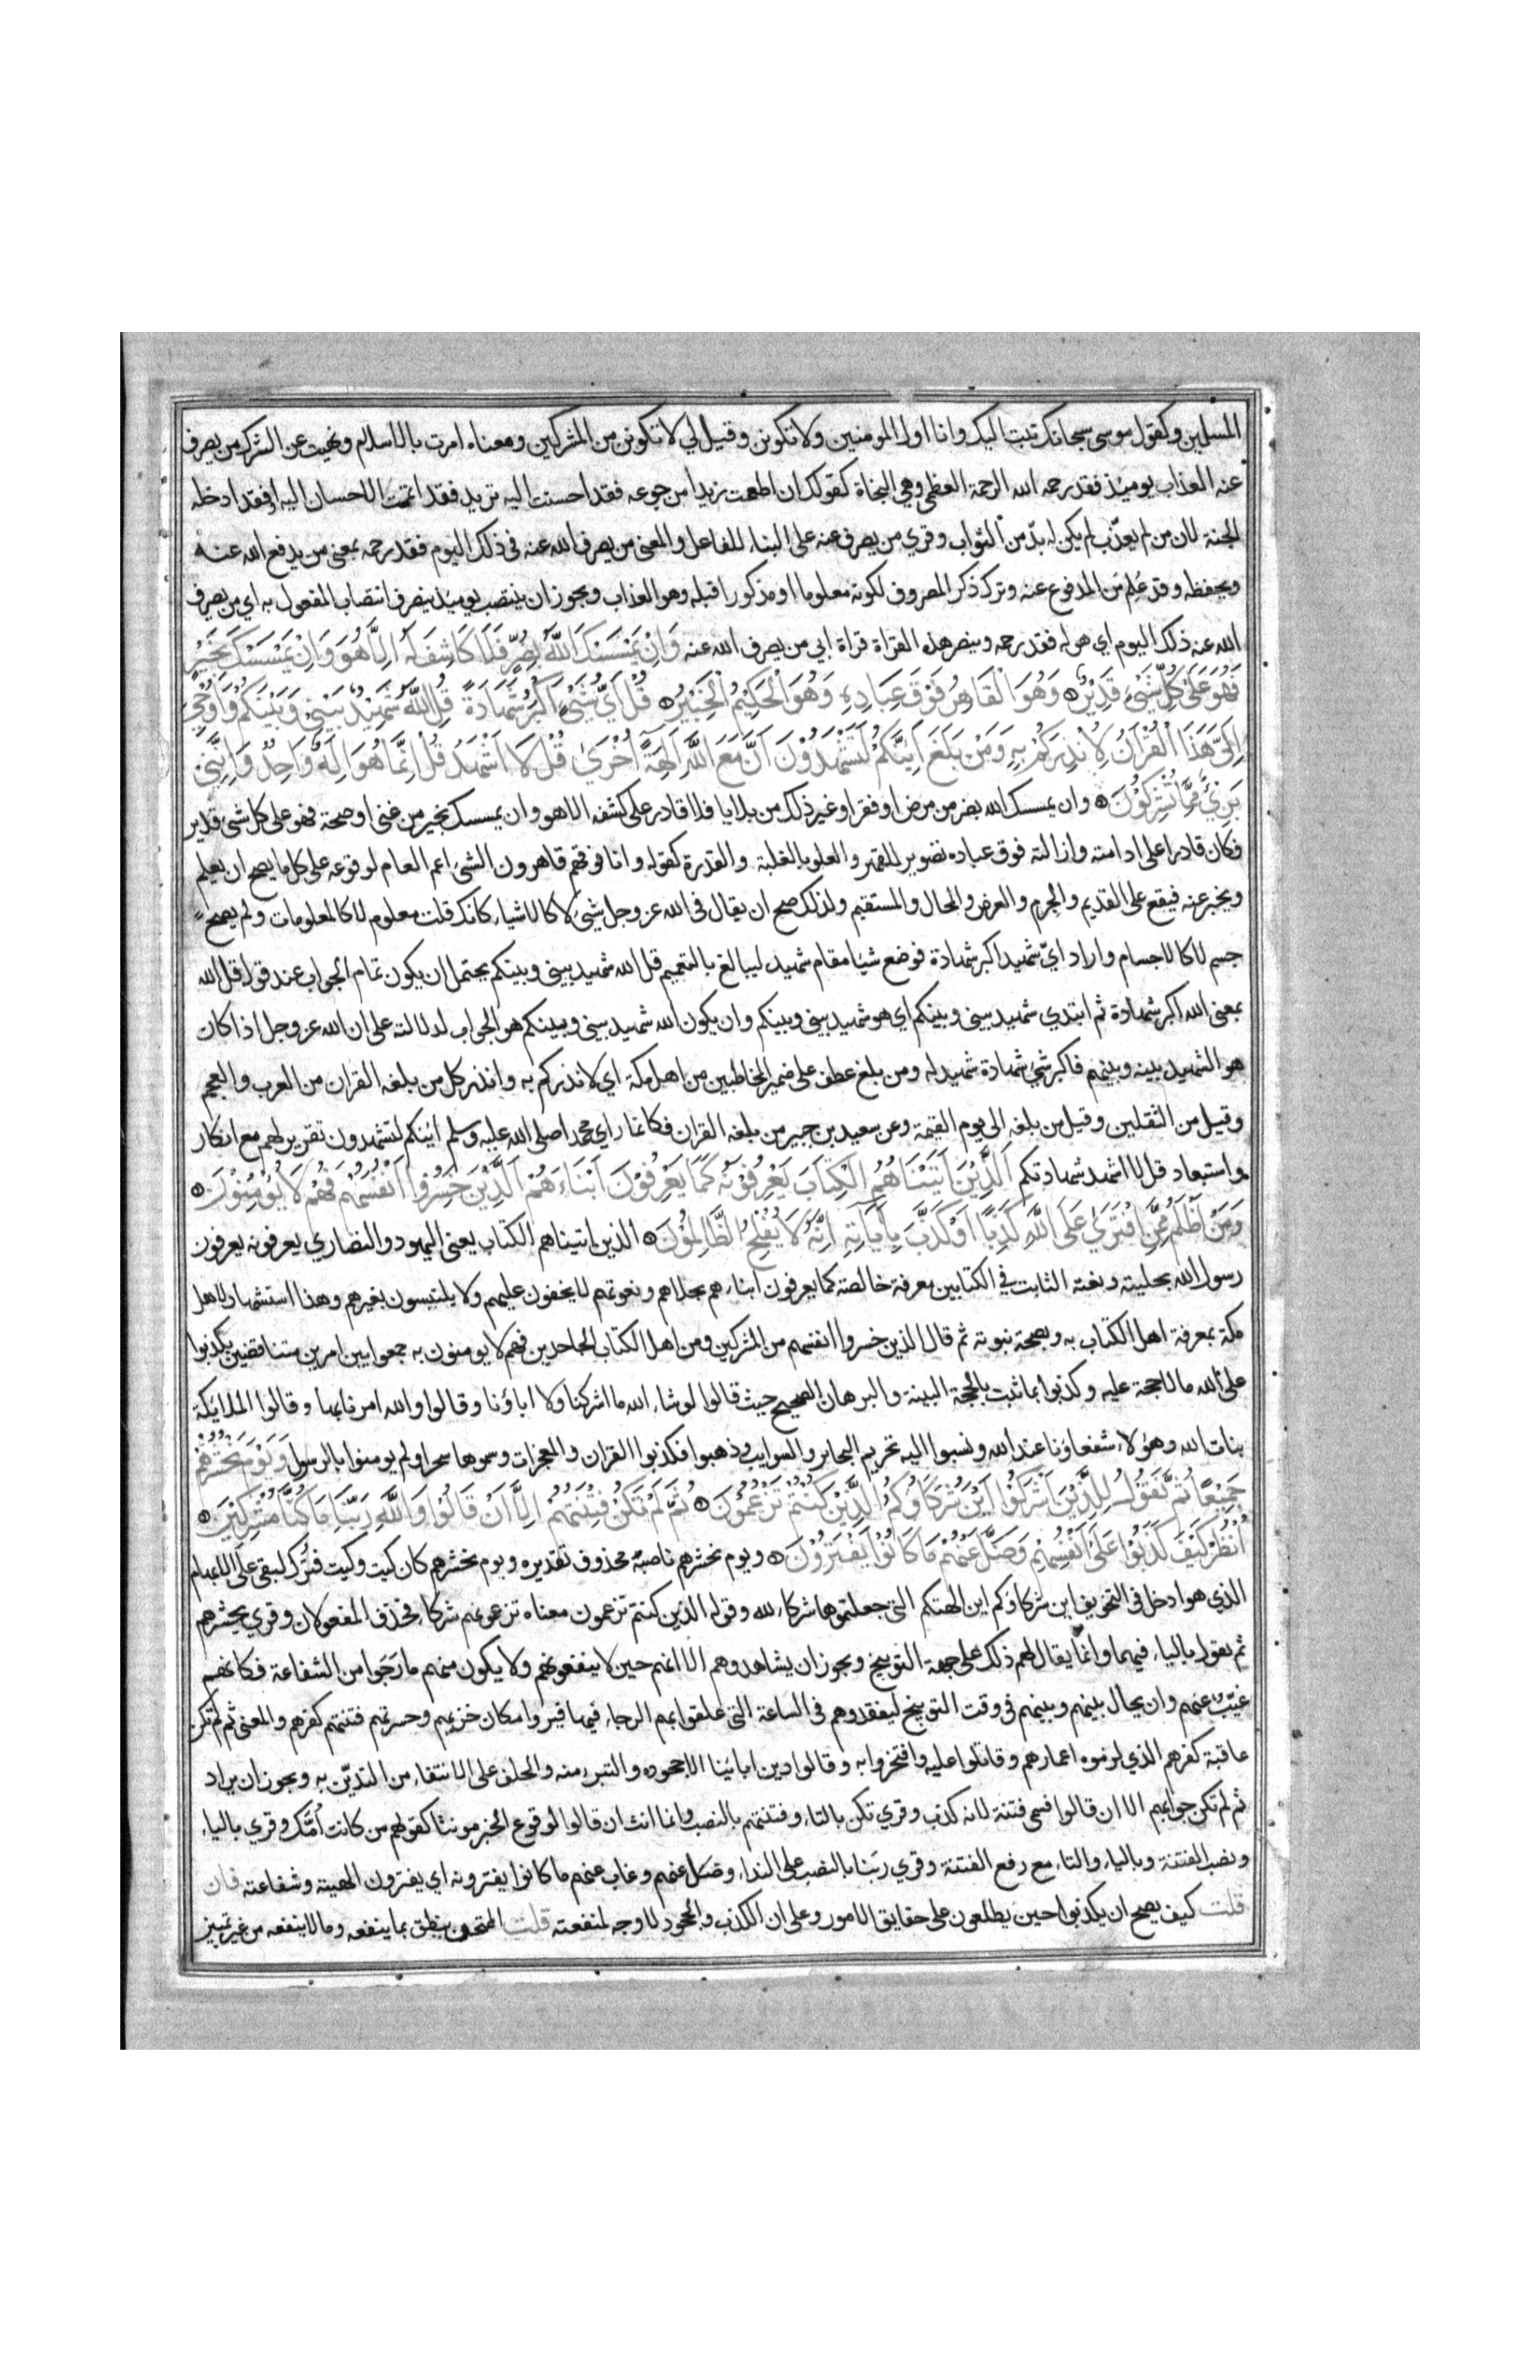 المسلمين وكقول موسى سبحانك تبت اليك وانا اول المومنين ولا تكونن وقيل لي لا تكونن من المشركين ومعناه امرت بالاسلام ونهيت عن الشرك من يصرف
عنه العذاب يوميذ فقد رحمه الله الرحمة العظمى وهي النجاة كقولك ان اطعمت زيدا من جوعه فقد احسنت اليه تريد فقد اتممت الاحسان اليه او فقد ادخله
الجنة لان من لم يعذّب لم يكن له بدّ من الثواب وقري من يصرف عنه على البناء للفاعل والمعنى من يصرف الله عنه في ذلك اليوم فقد رحمه بمعنى من يدفع الله عنه
ويحفظه وقد عُلم من المدفوع عنه وترك ذكر المصروف لكونه معلوما او مذكورا قبله وهو العذاب ويجوز ان ينتصب يوميذ بيصرف انتصاب المفعول به اي من يصرف
الله عنه ذلك اليوم اي هوله فقد رحمه وينصر هذه القراة قراة ابي من يصرف الله عنه وَاِنْ يَمْسَسْكَ اللَّهُ بِضُرٍّ فَلَا كَاشِفَ لَهُ اِلَّا هُوَ وَاِنْ يَمْسَسْكَ بِخَيْرٍ
فَهُوَ عَلَى كُلِّ شَيْءٍ قَدِيرٌ وَهُوَ الْقَاهِرُ فَوْقَ عِبَادِهِ وَهُوَ الْحَكِيمُ الْخَبِيرُ قُلْ اَيُّ شَيْءٍ اَكْبَرُ شَهَادَةً قُلِ اللَّهُ شَهِيدٌ بَيْنِي وَبَيْنَكُمْ وَاُوحِيَ
اِلَيَّ هَذَا الْقُرْآنُ لِاُنْذِرَكُمْ بِهِ وَمَنْ بَلَغَ اَئِنَّكُمْ لَتَشْهَدُونَ اَنَّ مَعَ اللَّهِ آلِهَةً اُخْرَى قُلْ لَا اَشْهَدُ قُلْ اِنَّمَا هُوَ اِلَهٌ وَاحِدٌ وَاِنَّنِي
بَرِيءٌ مِمَّا تُشْرِكُونَ وان يمسسك الله بضر من مرض او فقر او غير ذلك من بلايا فلا قادر على كشفه الا هو وان يمسسك بخير من غنى او صحة فهو على كل شي قدير
فكان قادرا على ادامته وازالته فوق عباده تصوير للقهر والعلو بالغلبة والقدرة كقوله وانا فوقهم قاهرون الشيء اعم العام لوقوعه على كل ما يصح ان يعلم
ويخبر عنه فيقع على القديم والجرم والعرض والمحال والمستقيم ولذلك صح ان يقال في الله عز وجل شيء لا كالاشياء كانك قلت معلوم لا كالمعلومات ولم يصح
جسم لا كالاجسام واراد ايّ شهيد اكبر شهادة فوضع شيا مقام شهيد ليبالغ بالتعميم قل الله شهيد بيني وبينكم يحتمل ان يكون تمام الجواب عند قوله قل الله
بمعنى الله اكبر شهادة ثم ابتدي شهيد بيني وبينكم اي هو شهيد بيني وبينكم وان يكون الله شهيد بيني وبينكم هو الجواب لدلالته على ان الله عز وجل اذا كان
هو الشهيد بينه وبينهم فاكبر شيء شهادة شهيد له ومن بلغ عطف على ضمير المخاطبين من اهل مكة اي لانذركم به وانذر كل من بلغه القران من العرب والعجم
وقيل من الثقلين وقيل من بلغه الى يوم القيمة وعن سعيد بن جبير من بلغه القران فكانما راي محمدا صلى الله عليه وسلم ائنكم لتشهدون تقرير لهم مع انكار
واستبعاد قل لا اشهد شهادتكم اَلَّذِينَ آتَيْنَاهُمُ الْكِتَابَ يَعْرِفُونَهُ كَمَا يَعْرِفُونَ اَبْنَاءَهُمْ اَلَّذِينَ خَسِرُوا اَنْفُسَهُمْ فَهُمْ لَا يُؤْمِنُونَ
وَمَنْ اَظْلَمُ مِمَّنِ افْتَرَى عَلَى اللَّهِ كَذِبًا اَوْ كَذَّبَ بِآيَاتِهِ اِنَّهُ لَا يُفْلِحُ الظَّالِمُونَ الذين اتيناهم الكتاب يعني اليهود والنصاري يعرفونه يعرفون
رسول الله بحليته ونعته الثابت في الكتابين معرفة خالصة كما يعرفون ابناءهم بحلاهم ونعوتهم لا يخفون عليهم ولا يلتبسون بغيرهم وهذا استشهاد لاهل
مكة بمعرفة اهل الكتاب به وبصحة نبوته ثم قال الذين خسروا انفسهم من المشركين ومن اهل الكتاب الجاحدين فهم لا يومنون به جمعوا بين امرين متناقضين فكذبوا
على الله ما لا حجة عليه وكذبوا بما ثبت بالحجة البينة والبرهان الصحيح حيث قالوا لو شاء الله ما اشركنا ولا اباؤنا وقالوا والله امرنا بها وقالوا الملايكة
بنات الله وهؤلاء شفعاؤنا عند الله ونسبوا اليه تحريم البحاير والسوايب وذهبوا فكذبوا القران والمعجزات وسموها سحرا ولم يومنوا بالرسول وَيَوْمَ نَحْشُرُهُمْ
جَمِيعًا ثُمَّ نَقُولُ لِلَّذِينَ اَشْرَكُوا اَيْنَ شُرَكَاؤُكُمُ الَّذِينَ كُنْتُمْ تَزْعُمُونَ ثُمَّ لَمْ تَكُنْ فِتْنَتُهُمْ اِلَّا اَنْ قَالُوا وَاللَّهِ رَبِّنَا مَا كُنَّا مُشْرِكِينَ
اُنْظُرْ كَيْفَ كَذَبُوا عَلَى اَنْفُسِهِمْ وَضَلَّ عَنْهُمْ مَا كَانُوا يَفْتَرُونَ ويوم نحشرهم ناصبه محذوف تقديره ويوم نحشرهم كان كيت وكيت فتُرك ليبقى على الابهام
الذي هو ادخل في التخويف اين شركاوكم اين الهتكم التي جعلتموها شركاء لله وقوله الذين كنتم تزعمون معناه تزعمونهم شركاء فحذف المفعولان وقري يحشرهم
ثم يقول بالياء فيهما وانما يقال لهم ذلك على جهة التوبيخ ويجوز ان يشاهدوهم الا انهم حين لا ينفعونهم ولا يكون منهم ما رَجَوا من الشفاعة فكانهم
غيّب عنهم وان يحال بينهم وبينهم في وقت التوبيخ ليفقدوهم في الساعة التي علقوا بهم الرجاء فيها فيروا مكان خزيهم وحسرتهم فتنتهم كفرهم والمعنى ثم لم تكن
عاقبة كفرهم الذي لزموه اعمارهم وقاتلوا عليه وافتخروا به وقالوا دين ابائنا الا جحوده والتبرء منه والحلف على الانتفاء من التديّن به ويجوز ان يراد
ثم لم تكن جوابهم الا ان قالوا فسمى فتنة لانه كذب وقري تكن بالتاء وفتنتهم بالنصب وانما انث ان قالوا لوقوع الخبر مونثا كقولهم من كانت اُمَّك وقري بالياء
ونصب الفتنة وبالياء والتاء مع رفع الفتنة وقري ربَنا بالنصب على النداء وضل عنهم وغاب عنهم ما كانوا يفترونه اي يفترون الهيته وشفاعته فان
قلت كيف يصح ان يكذبوا حين يطلعون على حقايق الامور وعلى ان الكذب والجحود لا وجه لمنفعته قلت الممتحن ينطق بما ينفعه وما لا ينفعه من غير تمييز